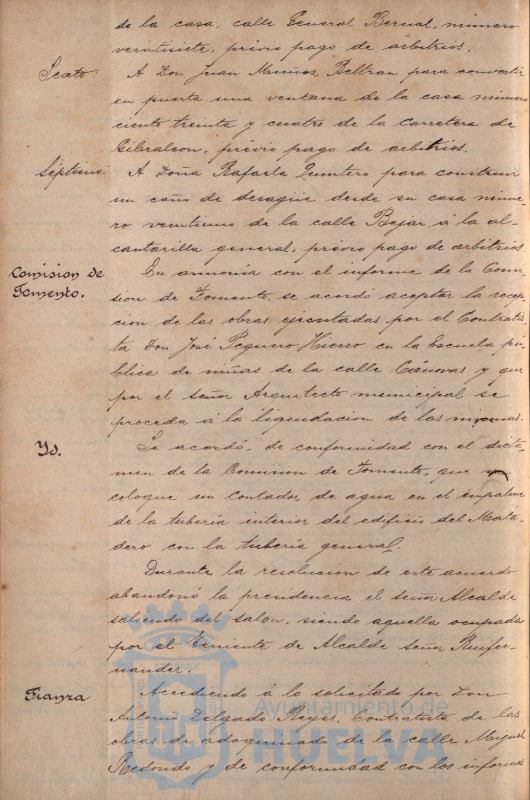 de la casa, calle General Bernal, número
veintisiete, previo pago de arbitrios.
Sexto: A Don Juan Muñoz Beltran, para convertir
en puerta una ventana de la casa número
ciento treinta y cuatro de la carretera de
Gibraleon, previo pago de arbitrios.
Séptimo: A Doña Rafaela Quintero para construir
un caño de desagüe desde su casa núme-
ro veintiuno de la calle Bejar, á la al-
cantarilla general, previo pago de arbitrios.
Comision de
Fomento.
En armonia con el informe de la Comi
sion de Fomento, se acordó aceptar la recep
cion de las obras ejecutadas por el Contratis
ta Don José Peguero Hierro en la Escuela pú
blica de niñas de la calle Cánovas y que
por el señor Arquitecto municipal se
proceda á la liquidacion de las mismas.
Yd. Se acordó, de conformidad con el dictá-
men de la Comision de Fomento, que se
coloque un contador de agua en el empalme
de la tubería interior del edificio del Mata
dero con la tubería general.
Durante la resolucion de este acuerdo
abandonó la presidencia el señor Alcalde
saliendo del salon, siendo aquella ocupada
por el Teniente de Alcalde señor Ruifer-
nandez.
Fianza Accediendo á lo solicitado por Don
Antonio Delgado Reyes, Contratista de las
obras de adoquinado de la calle Miguel
Redondo y de conformidad con los informes
Ayuntamiento de
HUELVA